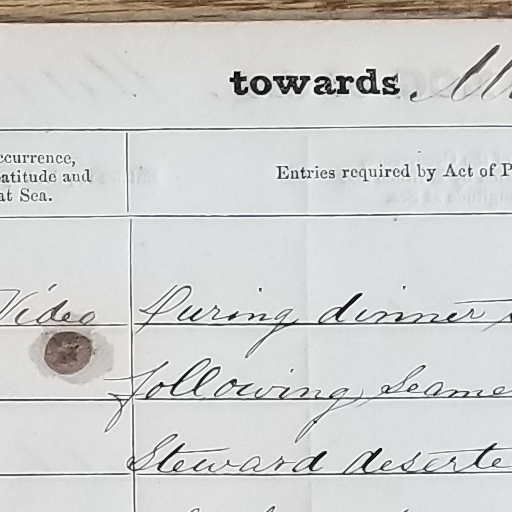 towards
ccurrence,
atitude and
at Sea.
Entries required by Act of P
Video
During dinner
following Seame
Steward deserte